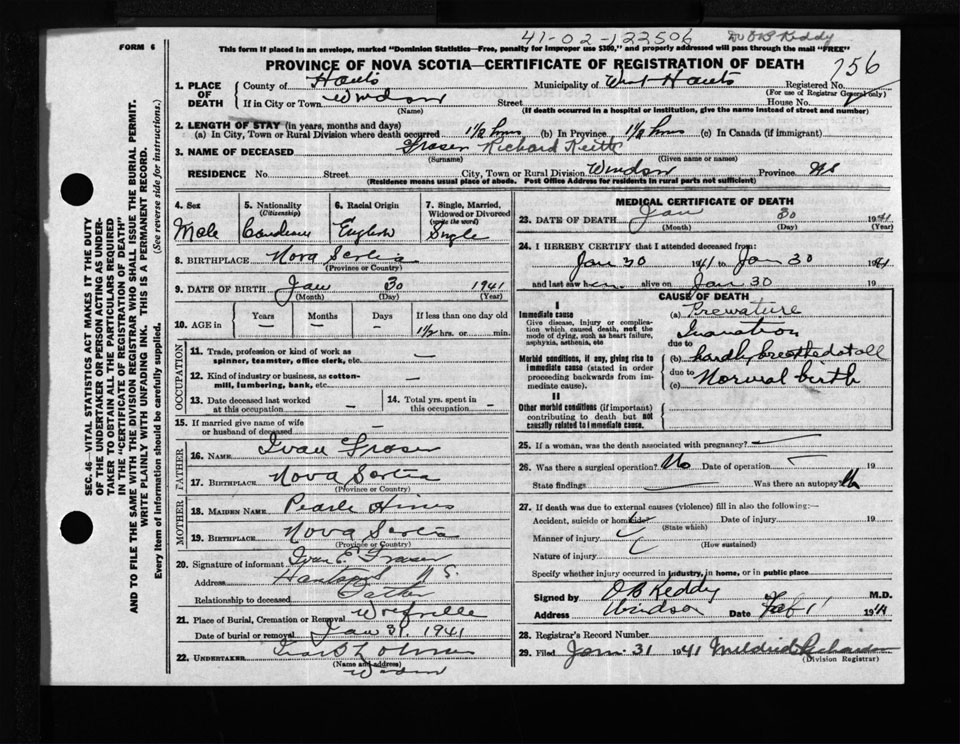 41-02-122506 Dr OB Keddy
FORM 6
This form if placed in an envelope, marked "Dominion Statistics—Free, penalty for improper use $300," and properly addressed will pass through the mail "FREE"
PROVINCE OF NOVA SCOTIA—CERTIFICATE OF REGISTRATION OF DEATH
256
1. PLACE OF DEATH County of Hants Municipality of West Hants Registered No.
(For use of Registrar General only)
If in City or Town Windsor Street House No.
(Name) (If death occurred in a hospital or institution, give the name instead of street and number)
2. LENGTH OF STAY (in years, months and days)
(a) In City, Town or Rural Division where death occurred 1½ hrs (b) In Province 1½ hrs (c) In Canada (if immigrant)
3. NAME OF DECEASED Fraser Richard Keith
(Surname) (Given name or names)
RESIDENCE No. Street City, Town or Rural Division Windsor Province NS
(Residence means usual place of abode. Post Office Address for residents in rural parts not sufficient)
4. Sex Male
5. Nationality (Citizenship) Canadian
6. Racial Origin English
7. Single, Married, Widowed or Divorced (write the word) Single
8. BIRTHPLACE Nova Scotia
(Province or Country)
9. DATE OF BIRTH Jan 30 1941
(Month) (Day) (Year)
10. AGE in Years Months Days If less than one day old
1½ hrs. or min.
OCCUPATION
11. Trade, profession or kind of work as spinner, teamster, office clerk, etc. —
12. Kind of industry or business, as cotton-mill, lumbering, bank, etc. —
13. Date deceased last worked at this occupation —
14. Total yrs. spent in this occupation —
15. If married give name of wife or husband of deceased —
FATHER
16. NAME Ivan Fraser
17. BIRTHPLACE Nova Scotia
(Province or Country)
MOTHER
18. MAIDEN NAME Pearle Hines
19. BIRTHPLACE Nova Scotia
(Province or Country)
20. Signature of informant Ivan E. Fraser
Address Hantsport N.S.
Relationship to deceased Father
21. Place of Burial, Cremation or Removal Wolfville
Date of burial or removal Jan 31, 1941
22. UNDERTAKER
(Name and address)
Windsor
MEDICAL CERTIFICATE OF DEATH
23. DATE OF DEATH Jan 30 1941
(Month) (Day) (Year)
24. I HEREBY CERTIFY that I attended deceased from:
Jan 30 1941 to Jan 30 1941
and last saw h alive on Jan 30 19
CAUSE OF DEATH
I
Immediate cause
Give disease, injury or complication which caused death, not the mode of dying, such as heart failure, asphyxia, asthenia, etc
(a) Premature
Inanation
due to
Morbid conditions, if any, giving rise to immediate cause (stated in order proceeding backwards from immediate cause).
(b) hardly breathed at all
due to
(c) Normal birth
II
Other morbid conditions (if important) contributing to death but not causally related to immediate cause.
25. If a woman, was the death associated with pregnancy? —
26. Was there a surgical operation? No Date of operation — 19
State findings — Was there an autopsy? No
27. If death was due to external causes (violence) fill in also the following:—
Accident, suicide or homicide? Date of injury 19
(State which)
Manner of injury
(How sustained)
Nature of injury
Specify whether injury occurred in industry, in home, or in public place
Signed by OB Keddy M.D.
Address Windsor Date Feb 1 1941
28. Registrar's Record Number
29. Filed Jan. 31 1941 Mildred Richardson
(Division Registrar)
SEC. 46—VITAL STATISTICS ACT MAKES IT THE DUTY
OF THE UNDERTAKER OR PERSON ACTING AS UNDER-
TAKER TO OBTAIN ALL THE PARTICULARS REQUIRED
IN THE "CERTIFICATE OF REGISTRATION OF DEATH"
AND TO FILE THE SAME WITH THE DIVISION REGISTRAR WHO SHALL ISSUE THE BURIAL PERMIT.
WRITE PLAINLY WITH UNFADING INK. THIS IS A PERMANENT RECORD.
Every item of information should be carefully supplied. (See reverse side for instructions.)